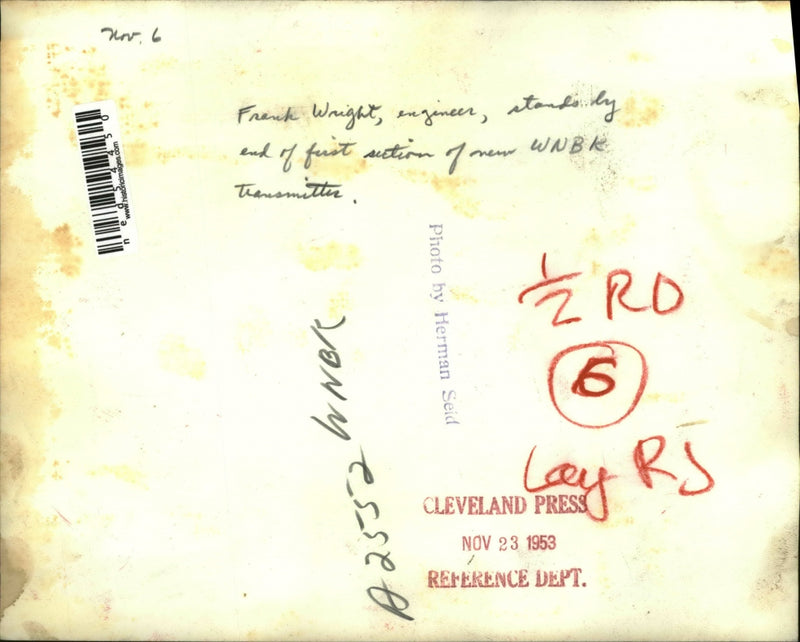 Nov. 6
Frank Wright, engineer, stands by
end of first section of new WNBK
transmitter.
ned54450
www.historicimages.com
Photo by Herman Seid
A2552 WNBK
1/2 RD
6
RJ
CLEVELAND PRESS
NOV 23 1953
REFERENCE DEPT.